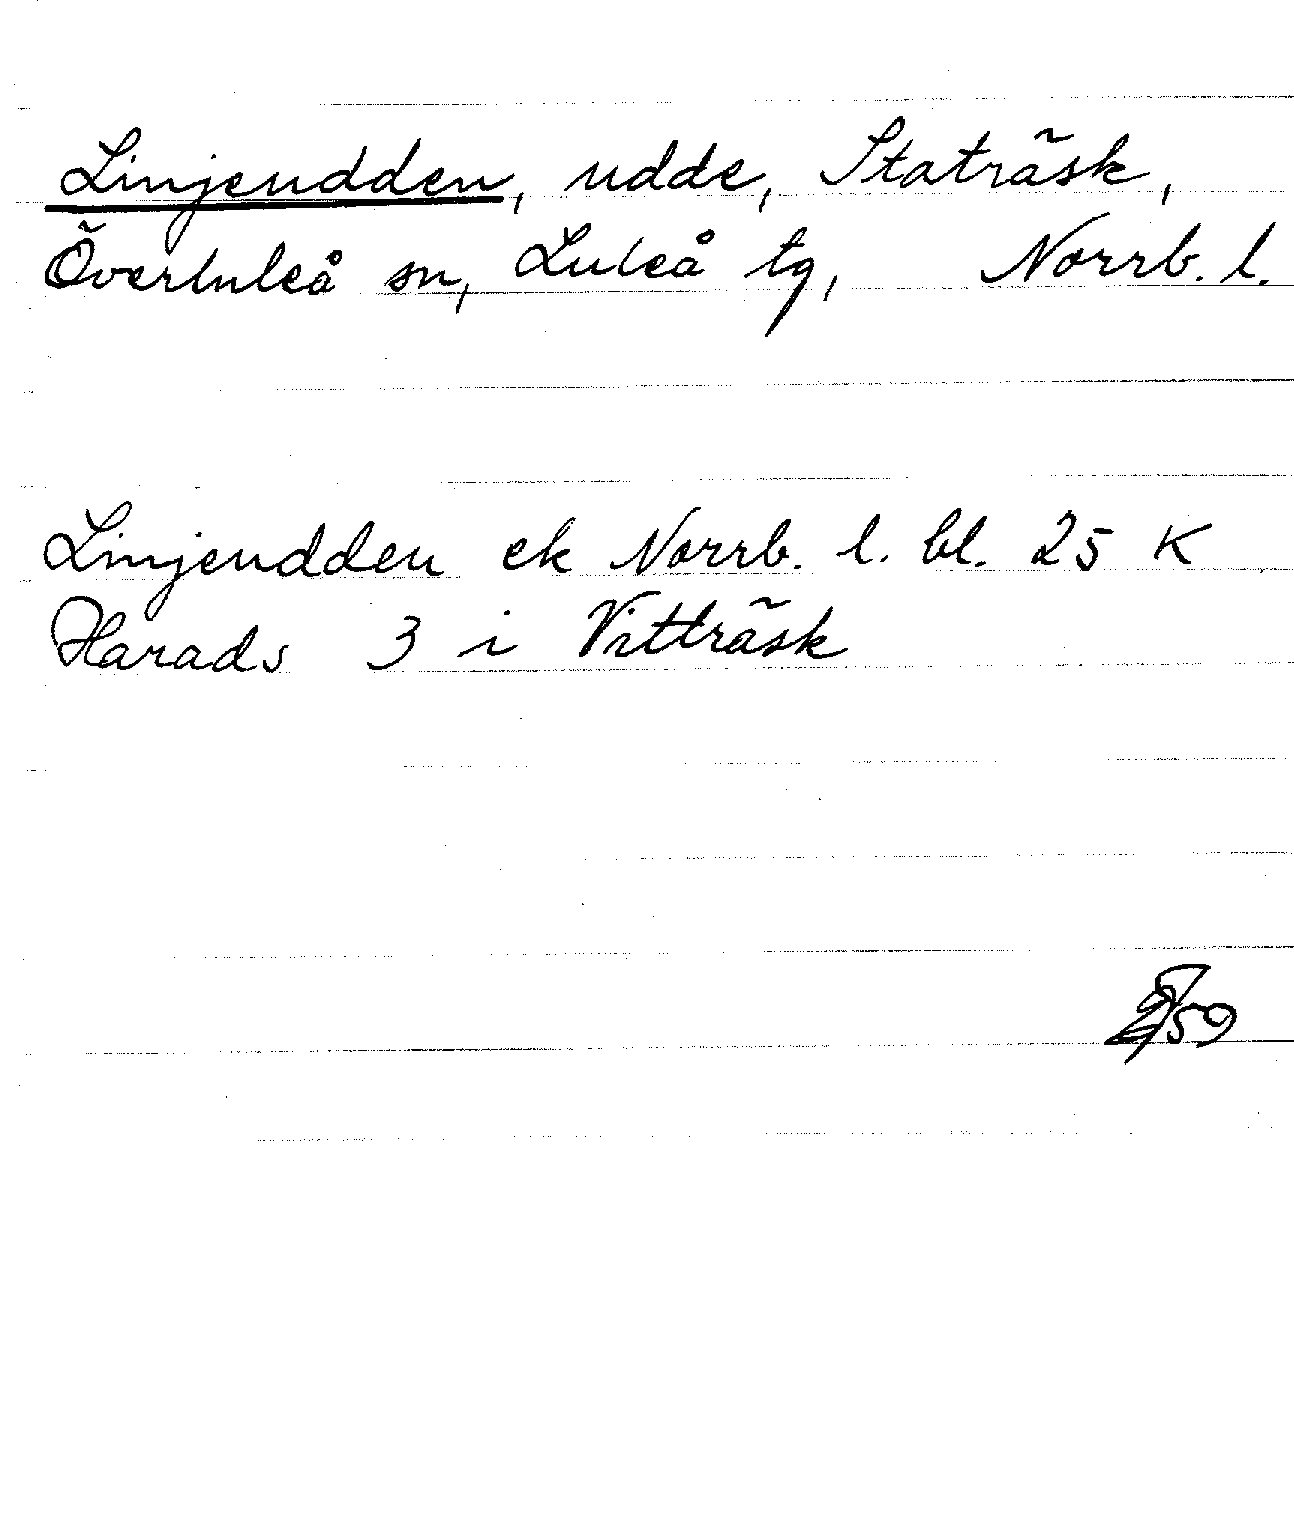 Linjeudden, udde, Statträsk,
Överluleå sn, Luleå tg, Norrb. l.
Linjeudden ek Norrb. l. bl. 25 K
Harads 3 i Vitträsk
59